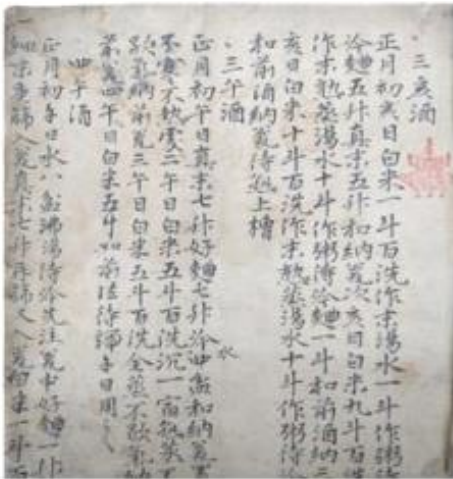 三亥酒
正月初亥日白米一斗百洗作末湯水一斗作粥待
冷麯五升真末五升和納瓮次亥日白米九斗百洗
作末熟蒸湯水十斗作粥待冷麯一斗和前酒納三
亥日白米十斗百洗作末熟蒸湯水十斗作粥待冷
和前酒納瓮待熟上槽
三午酒
正月初午日真末七升好麯七升冷水四盆和納瓮置
不寒不熱處二午日白米五斗百洗沉一宿熟蒸不
歇氣納前瓮三午日白米五斗百洗全蒸不歇氣納
前瓮四午日白米五斗如前法待端午日用之
四午酒
正月初午日水八盆沸湯待冷先注瓮中好麯一升
如末重篩入瓮真末七升再篩又入瓮白米一斗百